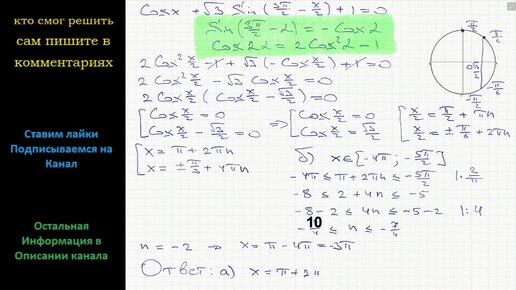 кто смог решить
сам пишите в
комментариях
Ставим лайки
Подписываемся на
Канал
Остальная
Информация в
Описании канала
Cos x + √3 Sin (3π/2 - x/2) + 1 = 0
Sin (3π/2 - α) = - Cos α
Cos 2α = 2 Cos² α - 1
2 Cos² x/2 - 1 + √3 (- Cos x/2) + 1 = 0
2 Cos² x/2 - √3 Cos x/2 = 0
2 Cos x/2 (Cos x/2 - √3/2) = 0
[ Cos x/2 = 0 => [ Cos x/2 = 0 [ x/2 = π/2 + πn
Cos x/2 - √3/2 = 0 Cos x/2 = √3/2 x/2 = ± π/6 + 2πn
[ x = π + 2πn
x = ± π/3 + 4πn
б) x ∈ [-4π; -5π/2]
-4π ≤ π + 2πn ≤ -5π/2 | · 2/π
-8 ≤ 2 + 4n ≤ -5
-8 - 2 ≤ 4n ≤ -5 - 2 | : 4
-10/4 ≤ n ≤ -7/4
n = -2 → x = π - 4π = -3π
Ответ: а) x = π + 2π
π/2
π/6
√3/2
-π/6
-π/2